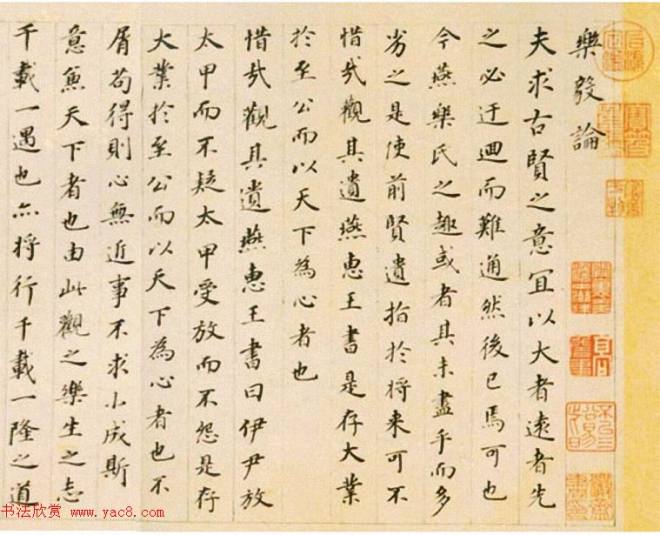 樂毅論
夫求古賢之意宜以大者遠者先
之必迂迴而難通然後已焉可也
今燕樂氏之趣或者其未盡乎而多
劣之是使前賢遺指於将来可不
惜哉觀其遺燕惠王書是存大業
於至公而以天下為心者也
惜哉觀其遺燕惠王書曰伊尹放
太甲而不疑太甲受放而不怨是存
大業於至公而以天下為心者也不
屑苟得則心無近事不求小成斯
意兼天下者也由此觀之樂生之志
千載一遇也亦将行千載一隆之道
书法欣赏 www.yac8.com